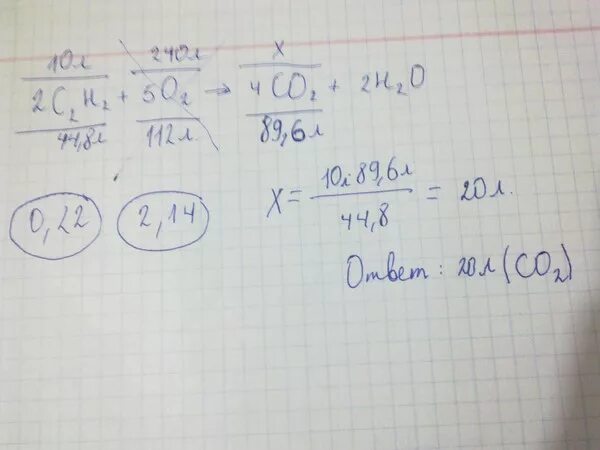 10л 240л x
2C₂H₂ + 5O₂ → 4CO₂ + 2H₂O
44,8л 112л 89,6л
0,22 2,14
X = 10л · 89,6л / 44,8 = 20л.
Ответ: 20л (CO₂)